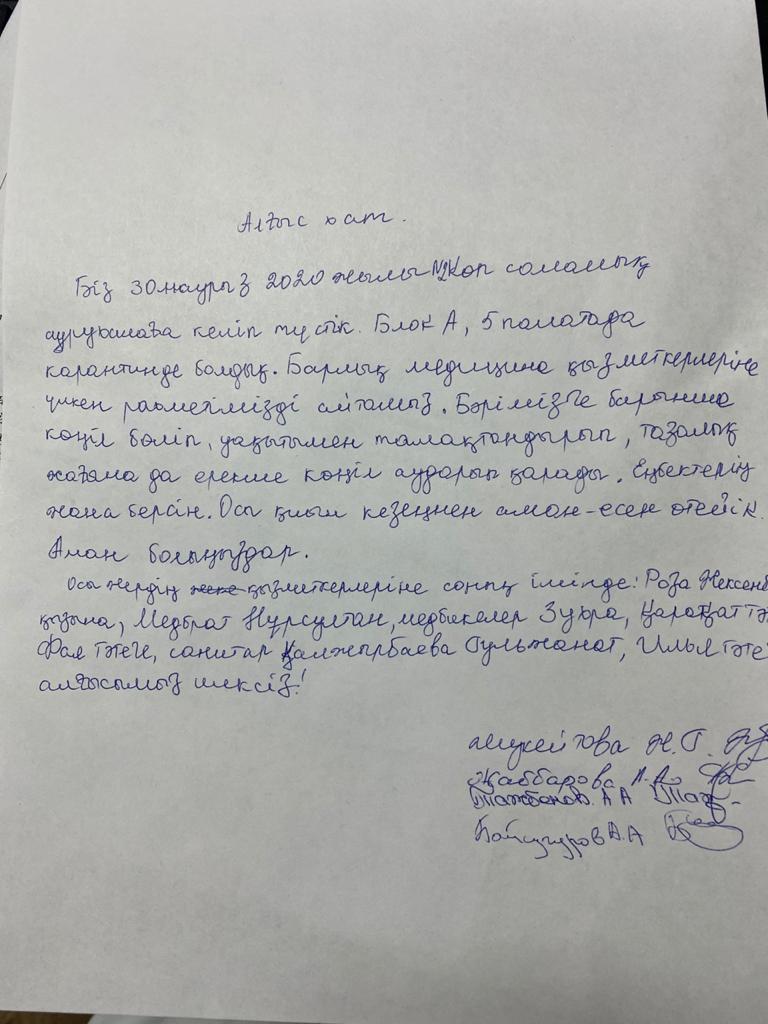 Алғыс хат.
Біз 30 наурыз 2020 жылы №2 көп салалық
ауруханаға келіп түстік. Блок А, 5 палатада
карантинде болдық. Барлық медицина қызметкерлеріне
үлкен рахметімізді айтамыз. Бәрімізге барынша
көңіл бөліп, уақытымен тамақтандырып, тазалық
жағына да ерекше көңіл аударып қарады. Еңбектерің
жана берсін. Осы қиын кезеңнен аман-есен өтейік.
Аман болыңыздар.
Осы жердің қызметкерлеріне соның ішінде: Роза Нексенб
қызына, Медбрат Нұрсұлтан, медбикелер Зухра, Қарақат тә
Фая тәтеге, санитар Қалжырбаева Гульжанат, Илья тәте
алғысымыз шексіз!
Н.Г.
Жаббарова
Тажбанов. А А
А.А